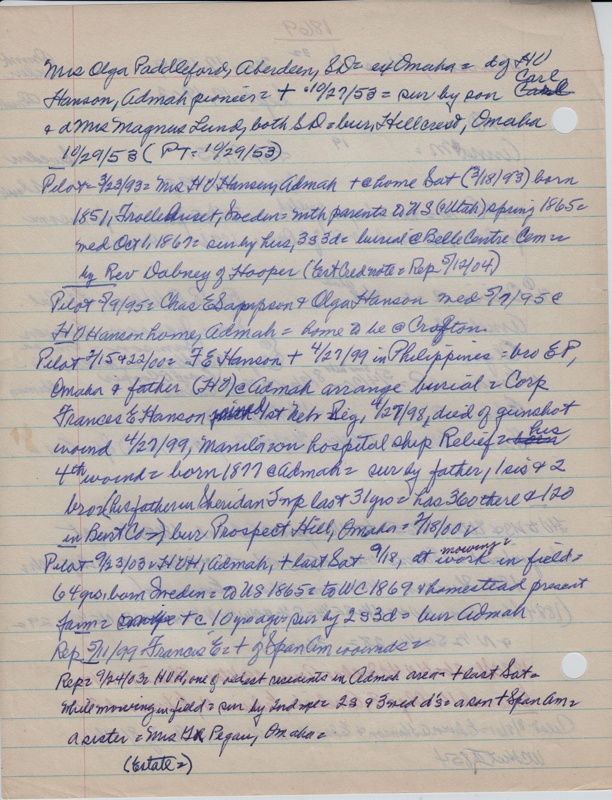 Mrs Olga Paddleford, Aberdeen, SD = ex Omaha = d of HV
Hanson, Admah pioneer = + 10/27/53 = sur by son Carl
& d Mrs Magnus Lund, both SD = bur, Hillcrest, Omaha
10/29/53 (PT = 10/29/53)
Pilot = 3/23/93 = Mrs HV Hansen, Admah + @ home Sat (3/18/93) born
1851, Trolle, Sweden = with parents to US (@ Utah) spring 1865 =
med Oct 1, 1867 = sur by hus, 3s 3d = buried @ Belle Centre Cem =
by Rev Dabney of Hooper (Est Cred note = Rep 5/12/04)
Pilot 5/9/95 = Chas E Sampson & Olga Hanson med 5/7/95 @
HV Hanson home, Admah = home to be @ Crofton
Pilot 2/15 & 22/00 = FE Hanson + 4/27/99 in Philippines = bro EP,
Omaha & father (HV) @ Admah arrange burial = Corp
Frances E Hanson 1st Neb Reg, 4/27/98, died of gunshot
wound 4/27/99, Manila on hospital ship Relief = his
4th wound = born 1877 @ Admah = sur by father, 1 sis & 2
bros (his father in Sheridan Twp last 31 yrs = has 360 there & 120
in Burt Co =) bur Prospect Hill, Omaha = 2/18/00
Pilot 9/23/03 = HVH, Admah, + last Sat 9/18, at work mowing in field =
64 yrs, born Sweden = to US 1865 = to WC 1869 & homestead present
farm = + c 10 yrs ago = sur by 2s 3d = bur Admah
Rep 5/11/99 Francis E = + of Span Am wounds =
Rep = 9/24/03 = HVH, one of oldest residents in Admah area = + last Sat =
while mowing in field = sur by 2nd 2s & 3 med d's = a son + Span Am =
a sister = Mrs Pegau, Omaha =
(Estate =)